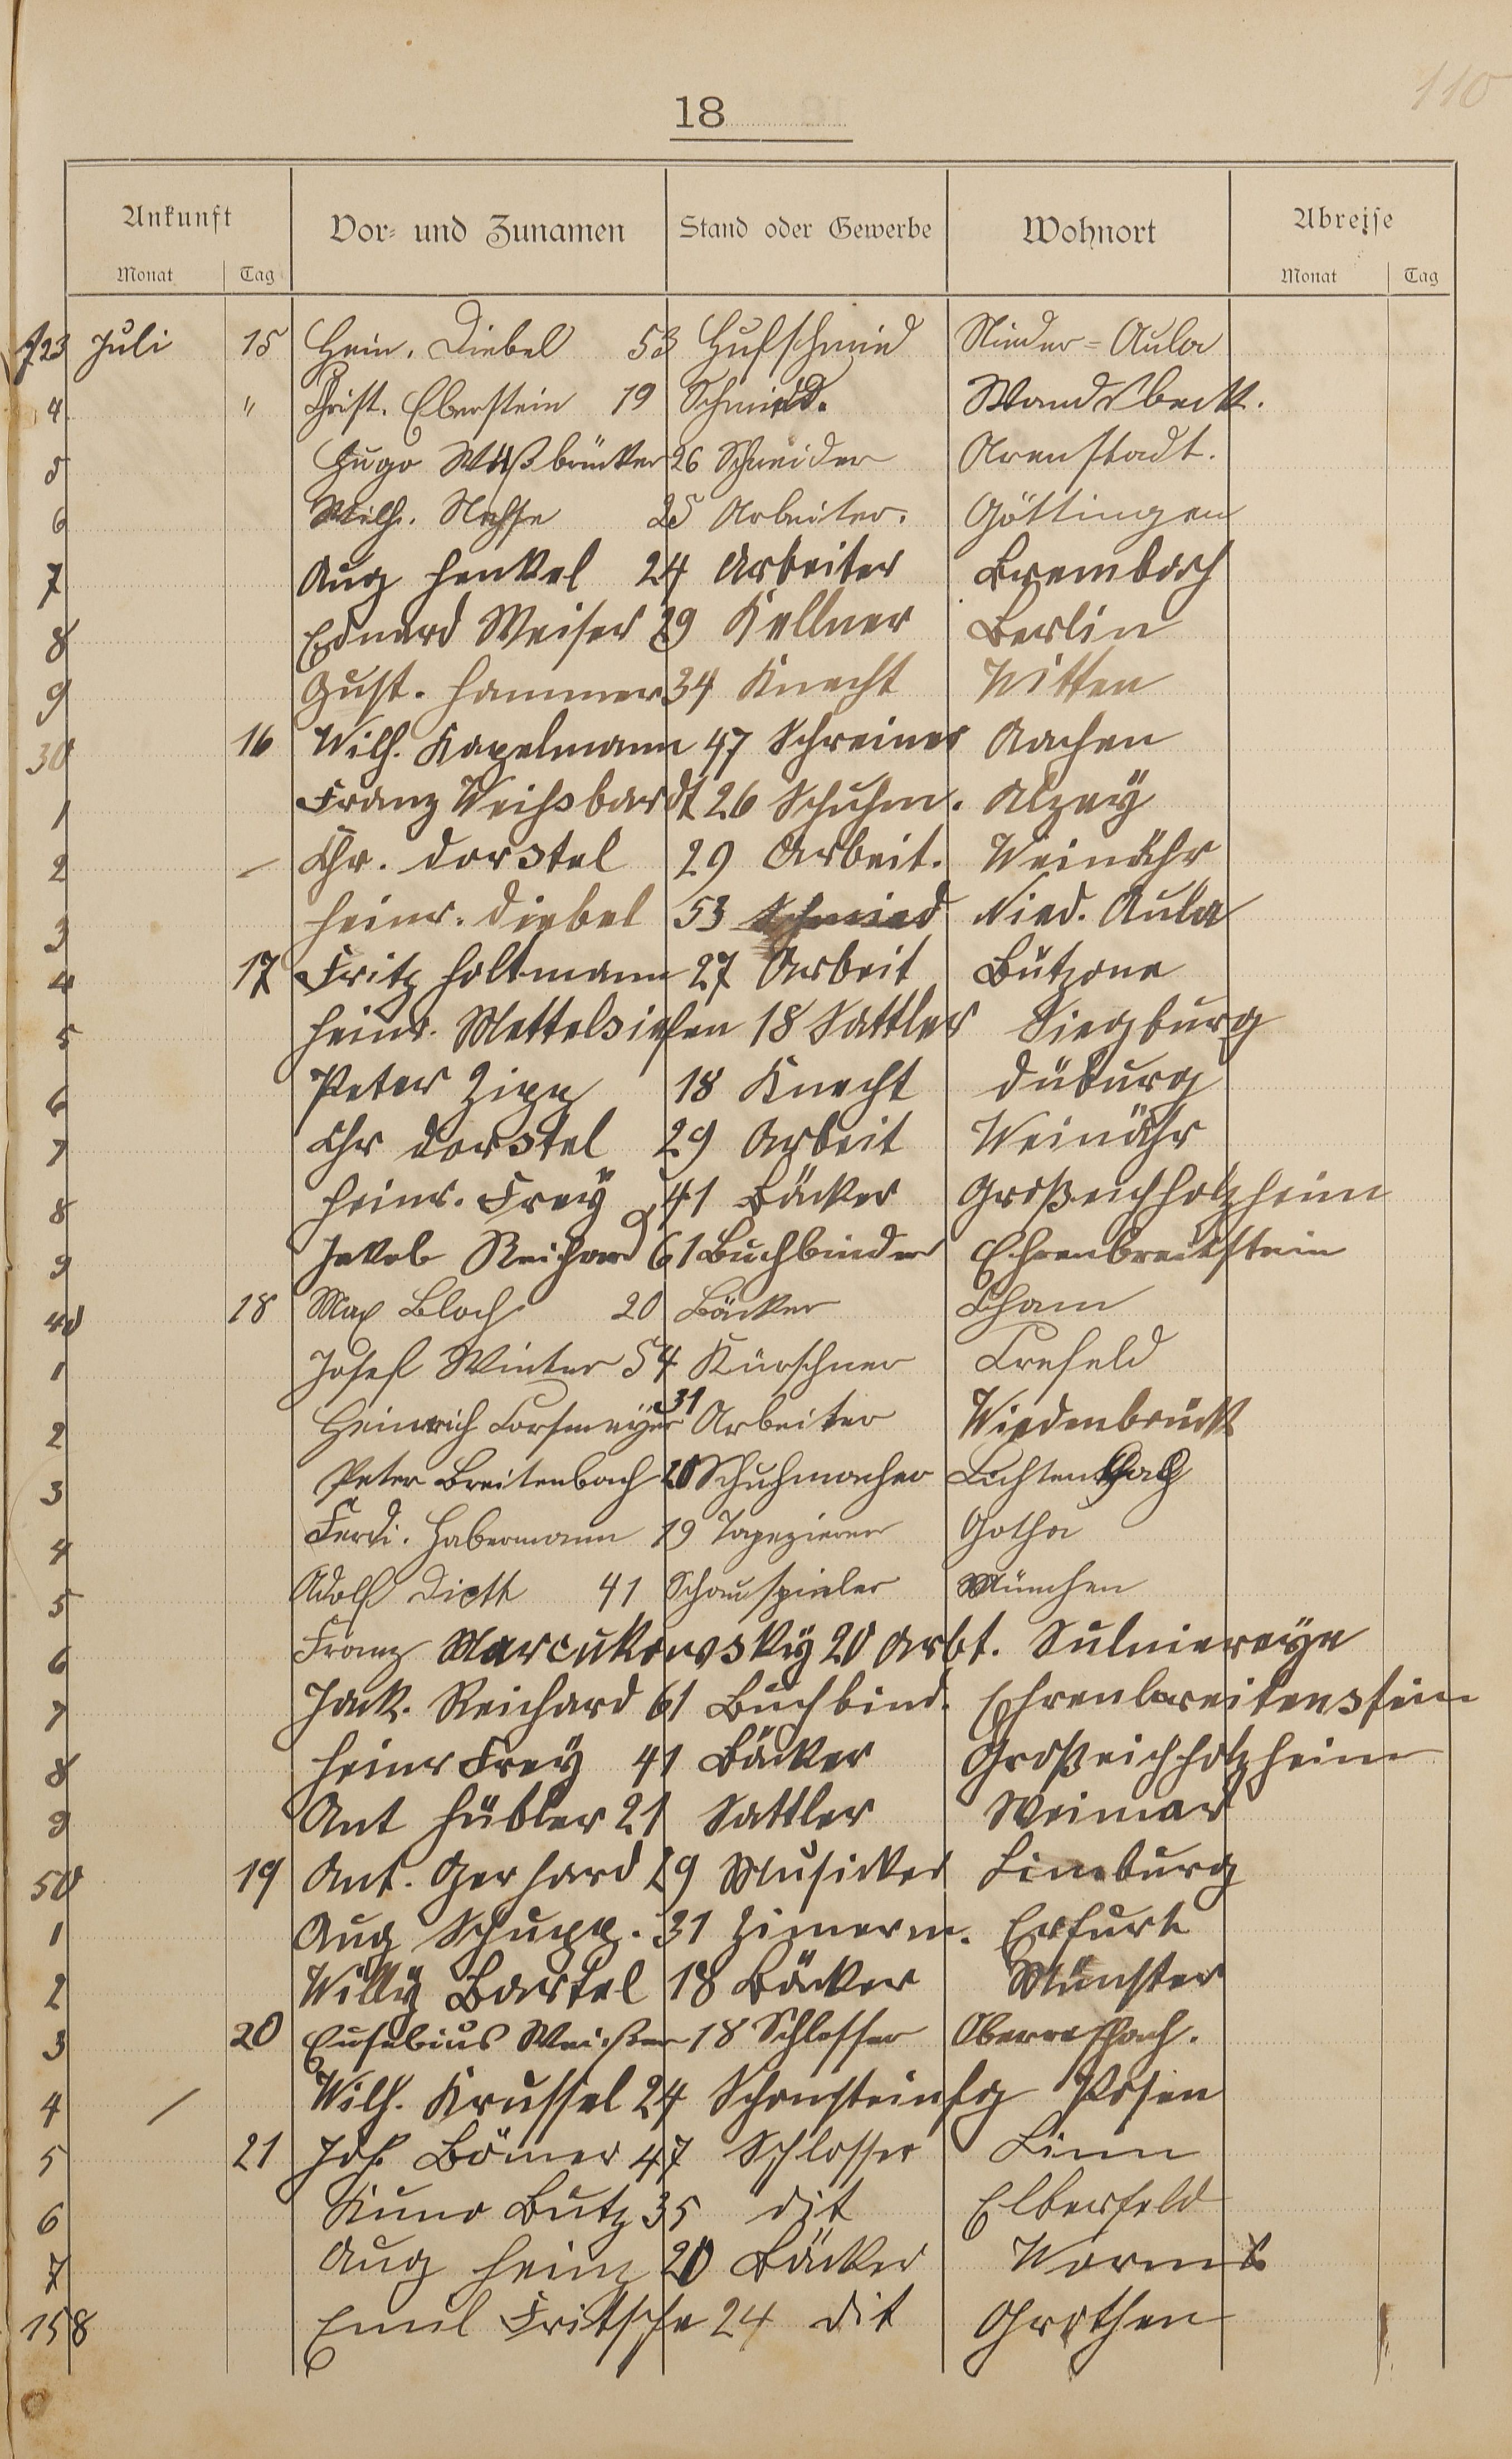 110
18
Ankunft Vor- und Zunamen Stand oder Gewerbe Wohnort Abreise
Monat Tag Monat Tag
723 Juli 15 Hein. Diebel 53 Hufschmied Nieder=Aula
4 " Christ. Eberstein 19 Schmied. Wandsbeck.
5 Hugo Wüßbrücker 26 Schneider Arenstadt.
6 Wilh. 25 Arbeiter. Göttingen
7 Aug Henkel 24 Arbeiter Brembach
8 Eduard Weiser 29 Kellner Berlin
9 Gust. Hammer 34 Knecht Witten
30 16 Wilh. Kapelmann 47 Schreiner Aachen
1 Franz Weihsbardt 26 Schuhm. Alzey
2 Chr. Dorstel 29 Arbeit. Weinähr
3 Heinr. Diebel 53 Schmied Nied. Aula
4 17 Fritz Holtmann 27 Arbeit Bützone
5 Heinr. Mettelsiefen 18 Sattler Siegburg
6 Peter Zipp 18 Knecht Düburg
7 Chr Dorstel 29 Arbeit Weinähr
8 Heinr. Frey 41 Bäcker Großeichholzheim
9 Jakob Reichard 61 Buchbinder Ehrenbreitstein
40 18 Max Bloch 20 Bäcker Cham
1 Josef Winter 54 Kürschner Crefeld
2 Heinrich Corsmeyer 31 Arbeiter Wiedenbrück
3 Peter Breitenbach 20 Schuhmacher Lichtenthal
4 Ferdi. Habermann 19 Tapezierer Gotha
5 Adolf 41 Schauspieler München
6 Franz Marcukowsky 20 Arbt. Sulmiereye
7 Jack. Reichard 61 Buchbind. Ehrenbreitenstein
8 Heinr Frey 41 Bäcker Großeichholzheim
9 Ant Hübler 21 Sattler Weimar
50 19 Ant. Gerhard 29 Musicker Limburg
1 Aug Schupp. 31 Zimerm. Erfurt
2 Willy Bartel 18 Bäcker Münster
3 20 Eusebius Weißer 18 Schlosser
4 Wilh. Krussel 24 Schonsteinfg Posen
5 21 Joh. Bömer 47 Schlosser Linn
6 Kuno Butz 35 dit Elberfeld
7 Aug Heinz 20 Bäcker Worms
158 Emil Fritsche 24 dit Grothen